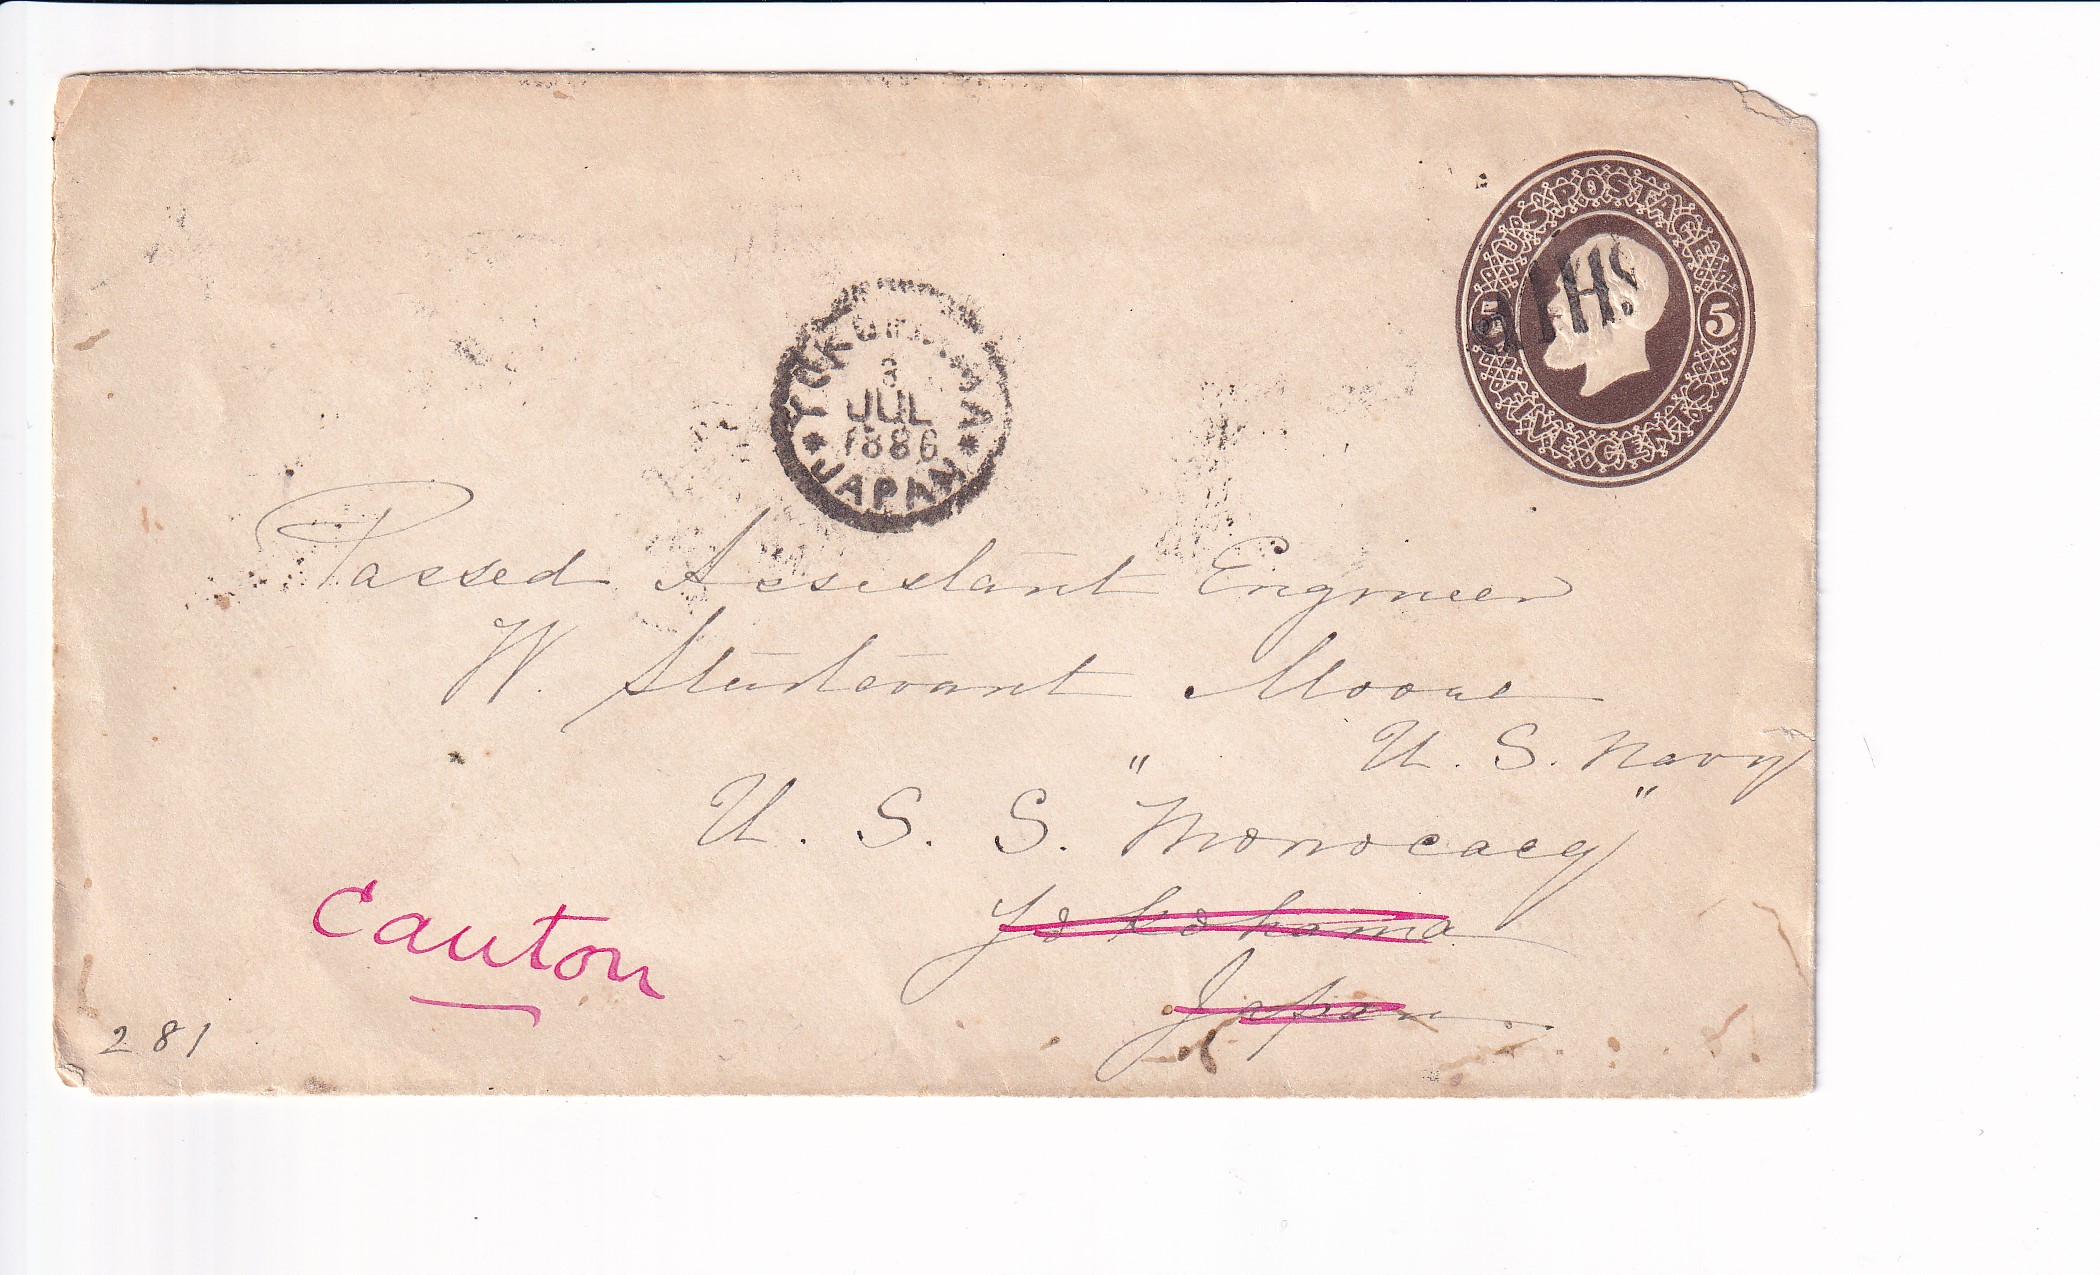 U.S.POSTAGE
5
FIVE CENTS
YOKOHAMA
3
JUL
1886
JAPAN
Passed Assistant Engineer
W. Sturtevant Moore
U. S. Navy
U. S. S. "Monocacy"
Yokohama
Japan
Canton
281